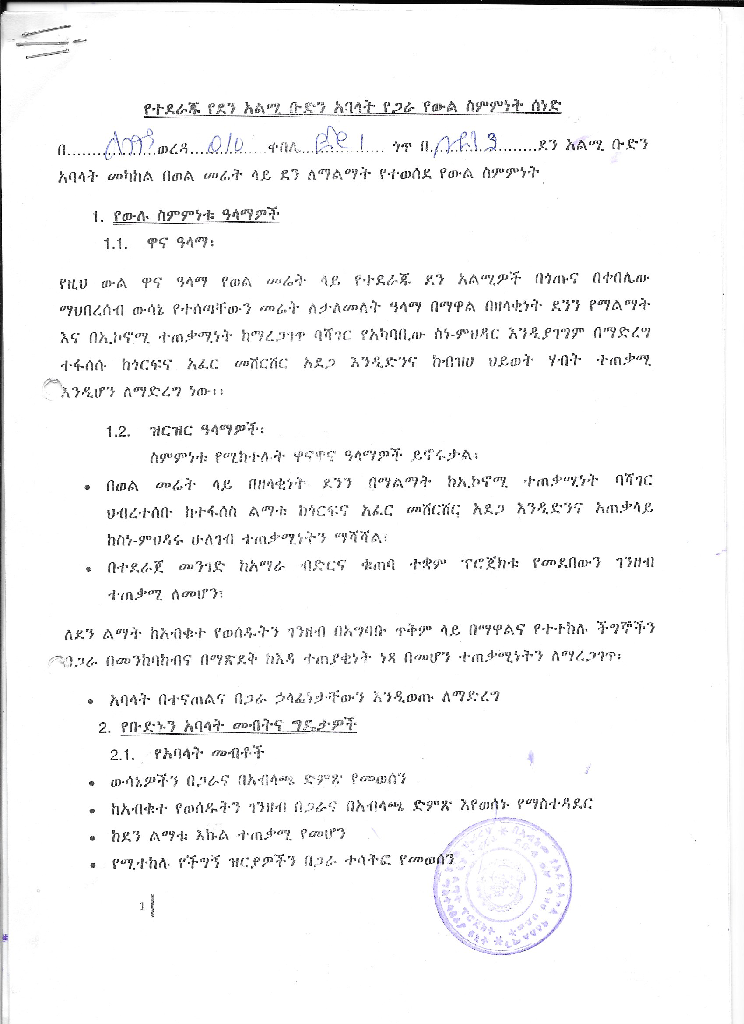 የተደራጁ የደን አልሚ ቡድን አባላት የጋራ የውል ስምምነት ሰነድ
በ................ወረዳ............ ቀበሌ ............ ጎጥ በ....................ደን አልሚ ቡድን
አባላት መካከል በወል መሬት ላይ ደን ለማልማት የተወሰደ የውል ስምምነት
1. የውሉ ስምምነቱ ዓላማዎች
1.1. ዋና ዓላማ፡
የዚህ ውል ዋና ዓላማ የወል መሬት ላይ የተደራጁ ደን አልሚዎች በጎጡና በቀበሌው
ማህበረሰብ ውሳኔ የተሰጣቸውን መሬት ለታለመለት ዓላማ በማዋል በዘላቂነት ደንን የማልማት
እና በኢኮኖሚ ተጠቃሚነት ከማረጋገጥ ባሻገር የአካባቢው ስነ-ምህዳር እንዲያገግም በማድረግ
ተፋሰሱ ከጎርፍና አፈር መሸርሸር አደጋ እንዲድንና ከብዝሀ ህይወት ሃብት ተጠቃሚ
እንዲሆን ለማድረግ ነው፡፡
1.2. ዝርዝር ዓላማዎች፡
ስምምነቱ የሚከተሉት ዋናዋና ዓላማዎች ይኖሩታል፡
• በወል መሬት ላይ በዘላቂነት ደንን በማልማት ከኢኮኖሚ ተጠቃሚነት ባሻገር
ህብረተሰቡ ከተፋሰስ ልማቱ ከጎርፍና አፈር መሸርሸር አደጋ እንዲድንና አጠቃላይ
ከስነ-ምህዳሩ ሁለገብ ተጠቃሚነትን ማሻሻል፡
• በተደራጀ መንገድ ከአማራ ብድርና ቁጠባ ተቋም ፕሮጀክቱ የመደበውን ገንዘብ
ተጠቃሚ ለመሆን፡
ለደን ልማት ከአብቁተ የወሰዱትን ገንዘብ በአግባቡ ጥቅም ላይ በማዋልና የተተከሉ ችግኞችን
በጋራ በመንከባከብና በማጽደቅ ከእዳ ተጠያቂነት ነጻ በመሆን ተጠቃሚነትን ለማረጋገጥ፡
• አባላት በተናጠልና በጋራ ኃላፊነታቸውን እንዲወጡ ለማድረግ
2. የቡድኑን አባላት መብትና ግዴታዎች
2.1. የአባላት መብቶች
• ውሳኔዎችን በጋራና በአብላጫ ድምጽ የመወሰን
• ከአብቁተ የወሰዱትን ገንዘብ በጋራና በአብላጫ ድምጽ እየወሰኑ የማስተዳደር
• ከደን ልማቱ እኩል ተጠቃሚ የመሆን
• የሚተከሉ የችግኝ ዝርያዎችን በጋራ ተሳትፎ የመወሰን
1